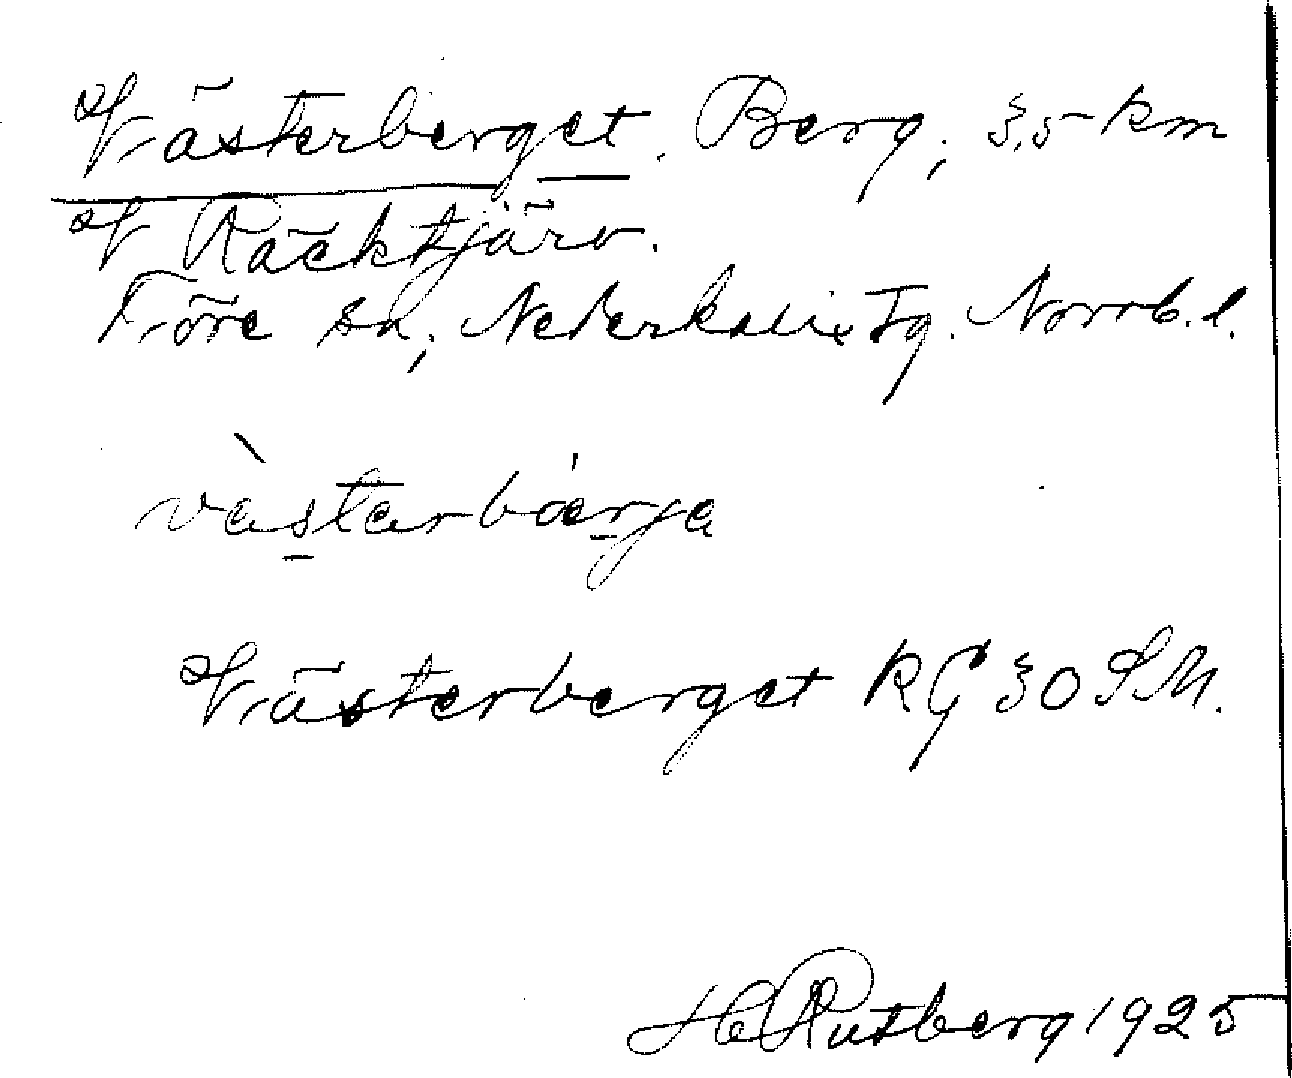 Västerberget. Berg, 3,5 km
V Räcktjärv.
Töre sn, Nederkalix tg. Norrb. l.
vàstarbáerja
Västerberget RG 30 SM.
H Rutberg 1925